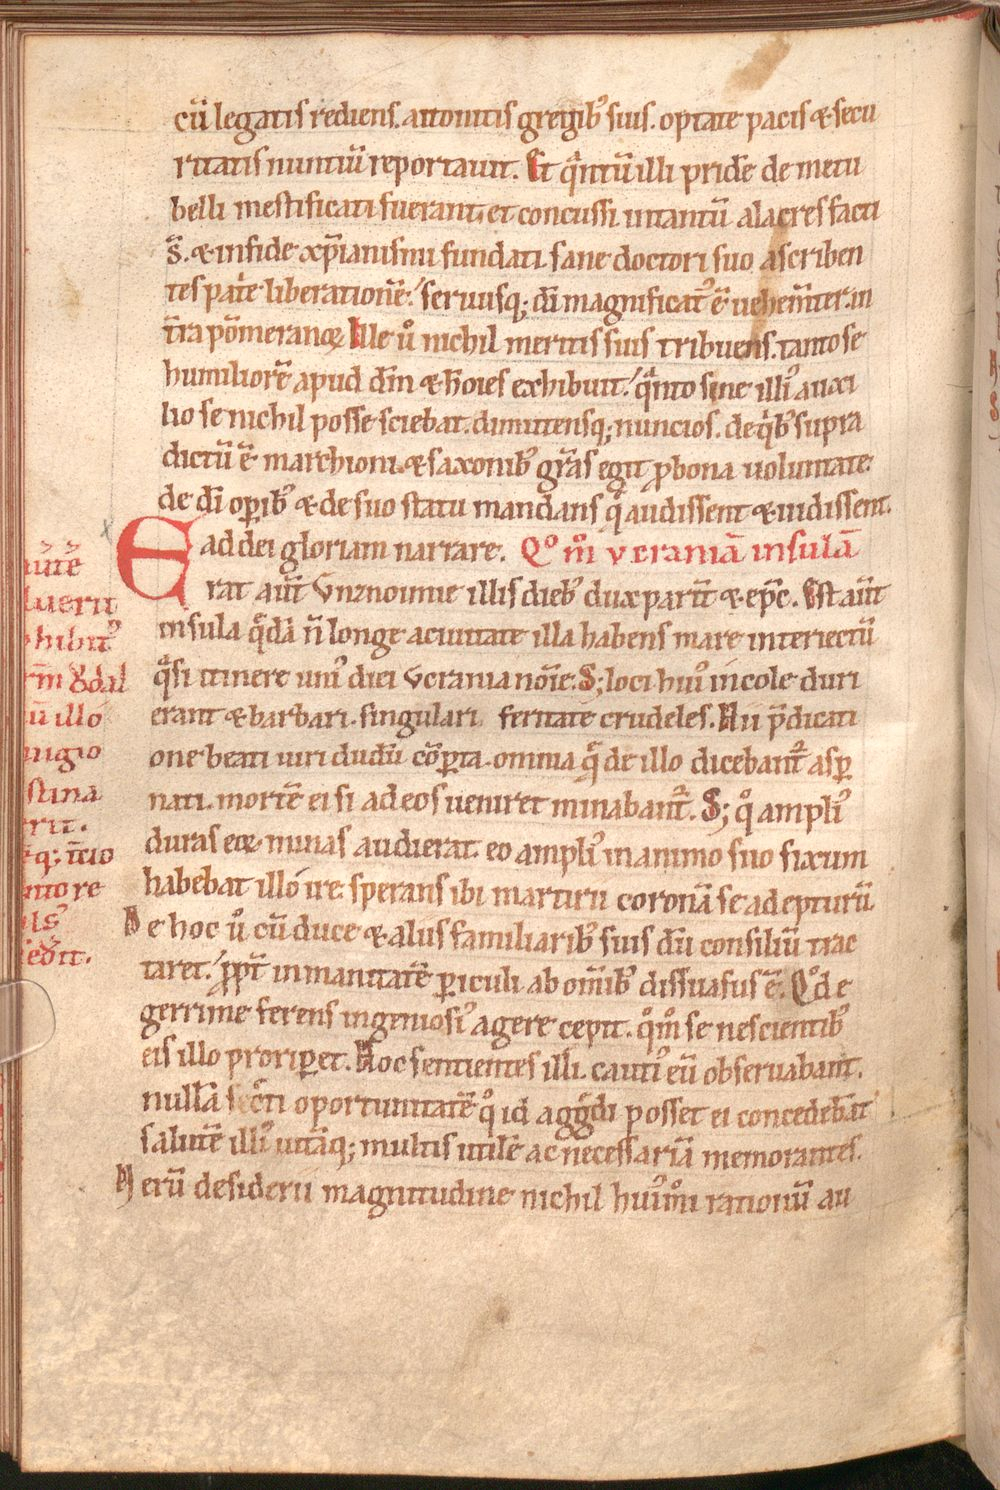 cū legatis rediens. attonitis gregibꝰ suis. optate pacis & secu
ritatis nuntiū reportauit. Et qͣntū illi pridē de metu
belli mestificati fuerant. et concussi intantū alacres facti
s̄. & in fide xp̄ianismi fundati. sane doctori suo ascriben
tes patͥe liberationē. seruusq; dī magnificatꝰ ē uehem̄ter. in
t̄ra pōmeranoꝝ. Ille uͦ nichil meritis suis tribuens. tanto se
humiliorē apud dm̄ & hoīes exhibuit. qͣnto sine illiꝰ auxi
lio se nichil posse sciebat. dimittensq; nuncios. de qͥbꝰ supra
dictū ē marchioni & saxonibꝰ gr̄as egit ꝓ bona uoluntate
de dī opibꝰ & de suo statu mandans qͣ audissent & uidissent.
ad dei gloriam narrare. Qͦm̄ ucraniā insulā
Erat aut̄ Vnznoimie illis diebꝰ dux parit̄ & ep̄c. Est aut̄
insula qͣdā n̄ longe a ciuitate illa habens mare interiectū
qͣsi itinere uniꝰ diei Vcrania noīe. S; loci huiꝰ incole duri
erant & barbari. singulari feritate crudeles. Hii p̄dicati
one beati uiri dudū cōꝑta. omnia qͣ de illo dicebant᷑ asꝑ
nati. mortē ei si ad eos ueniret minabant᷑. S; qͦ ampliꝰ
duras eoꝝ minas audierat. eo ampliꝰ in animo suo fixum
habebat illo ire. sperans ibi martirii coronā se adepturū
De hoc uͦ cū duce & aliis familiaribꝰ suis dū consiliū trac
taret. ꝓpt̄ inmanitatē ꝑiculi ab om̄ibꝰ dissuasus ē. Qͦd e
gerrime ferens ingeniosiꝰ agere cepit. qͦm̊ se nescientibꝰ
eis illo proriꝑet. Hoc sentientes illi. cautiꝰ eū obseruabant.
nullā secͥti oportunitatē qͦ id agg̊di posset ei concedebāt
salutē illiꝰ uitāq; multis utilē ac necessariā memorantes.
Verū desiderii magnitudine nichil huiꝰm̊i rationū au
autē
hibit
illo
nigio
stina
rit.